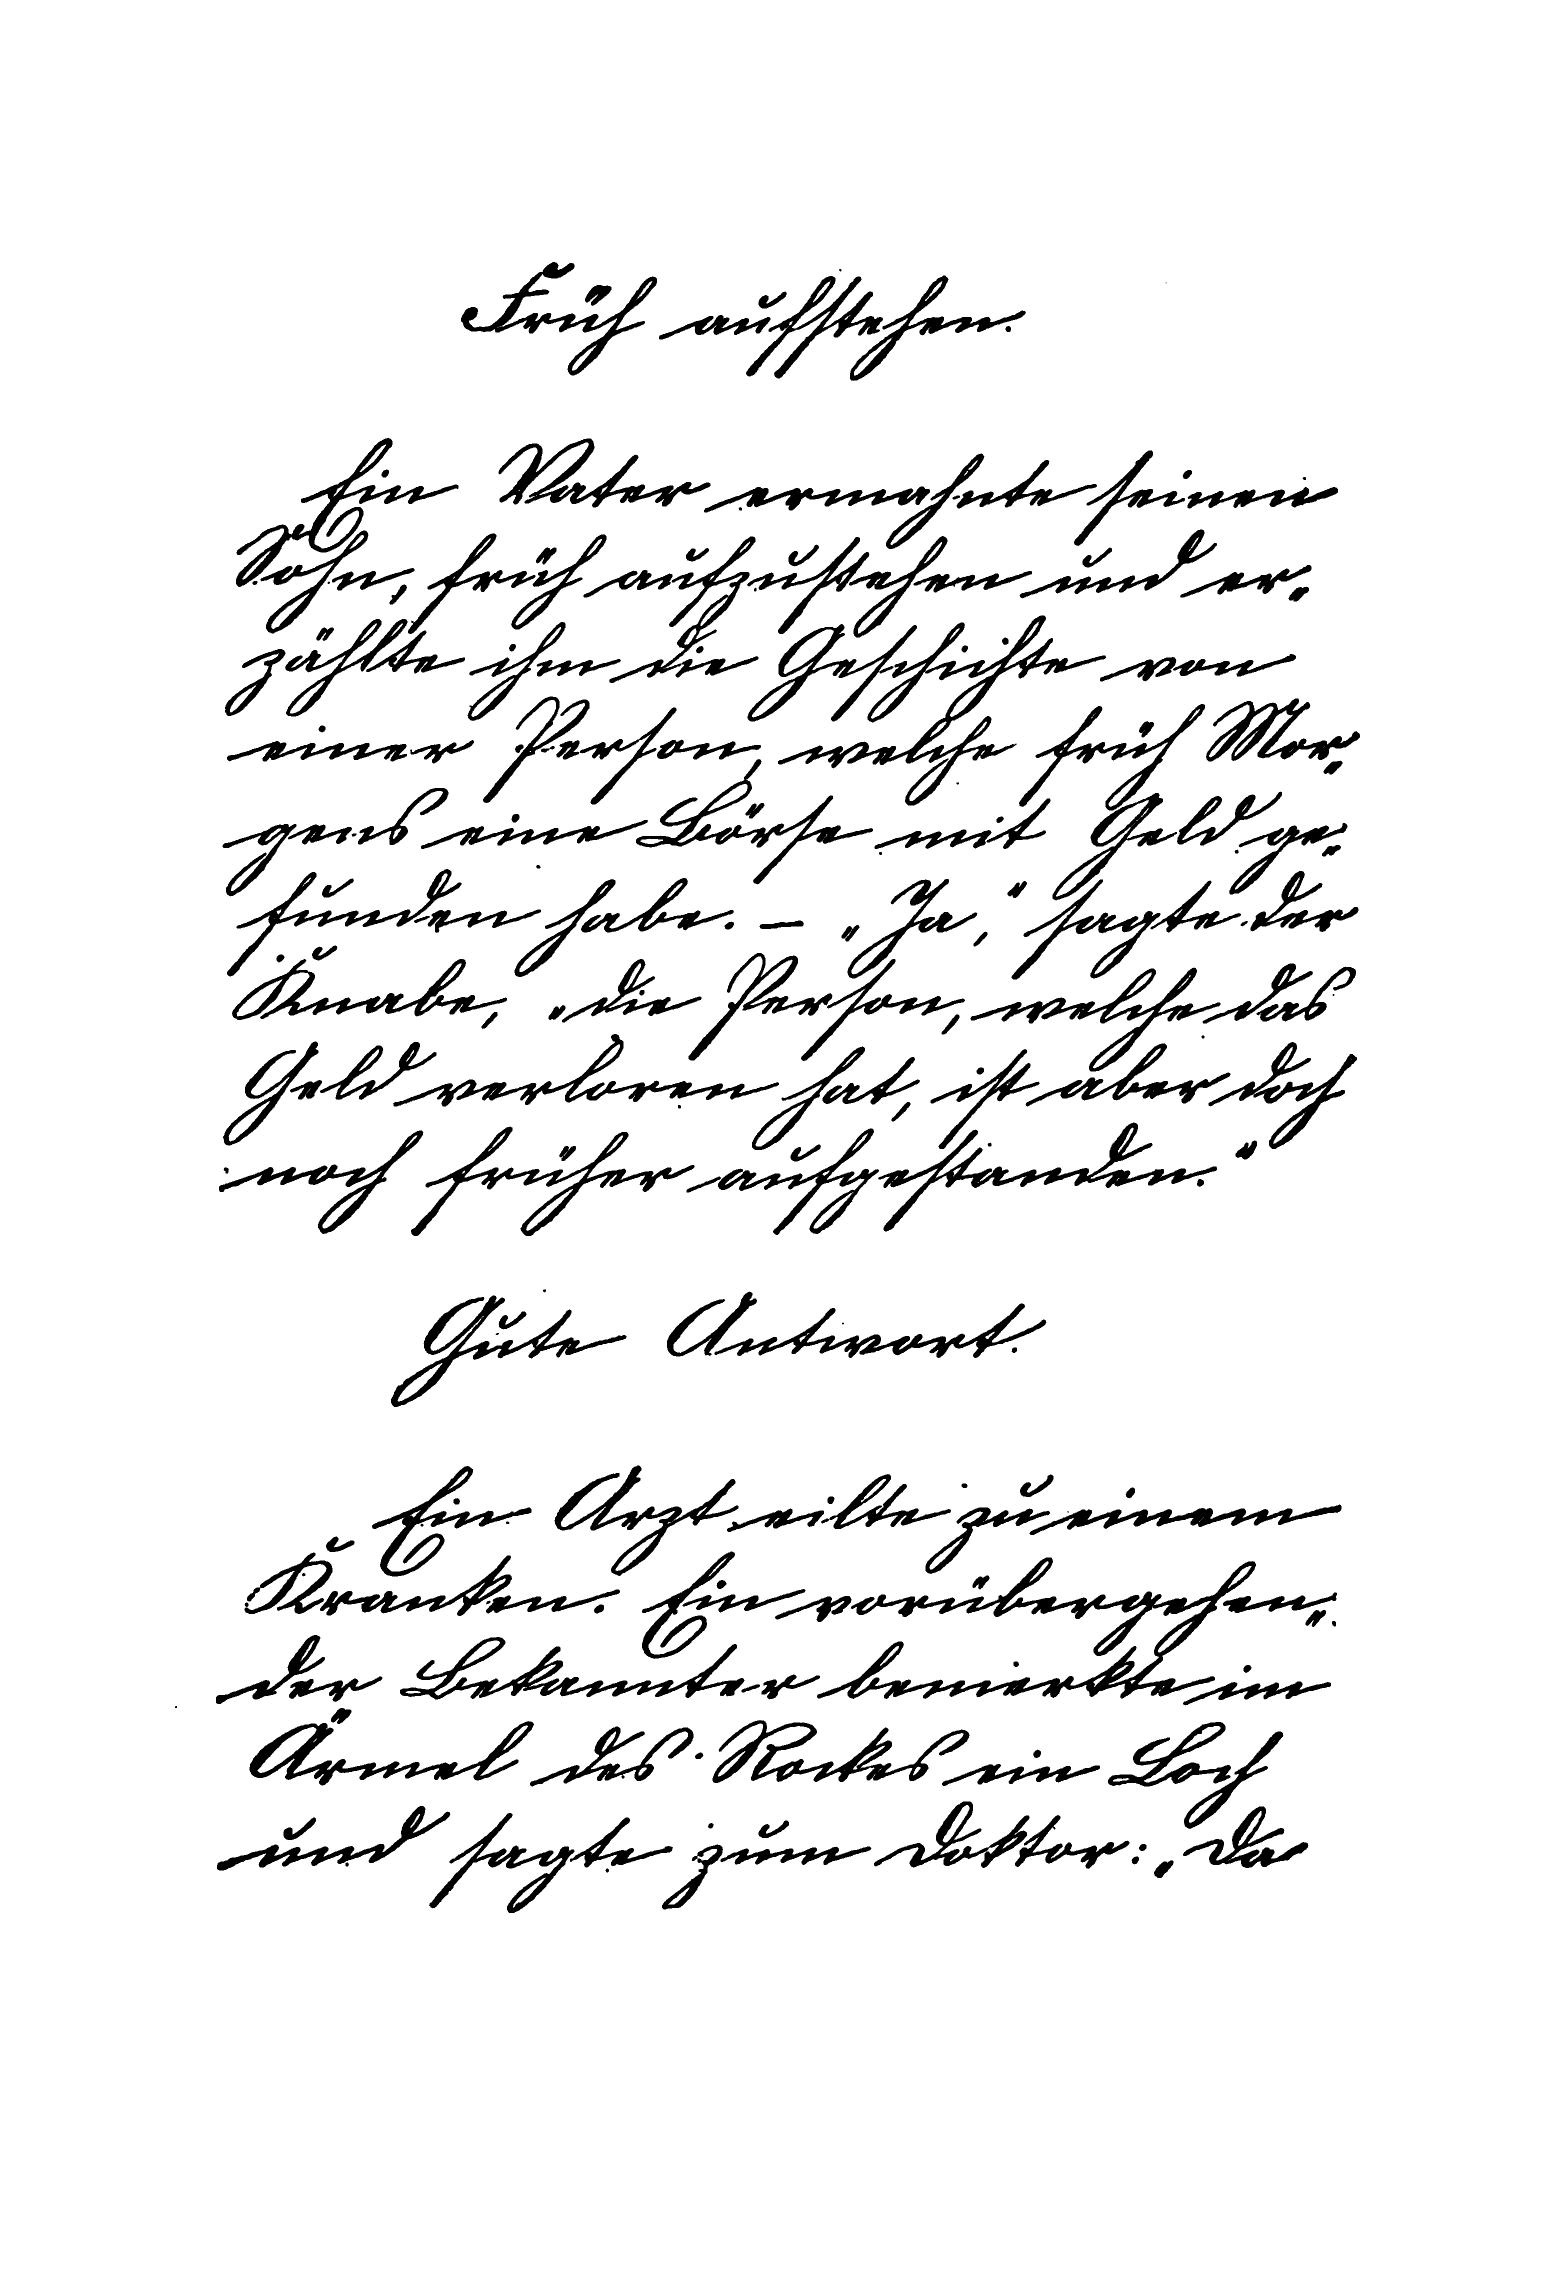 Früh aufstehen.
Ein Vater ermahnte seinen
Sohn, früh aufzustehen und er-
zählte ihm die Geschichte von
einer Person, welche früh Mor-
gens eine Börse mit Geld ge-
funden habe. – „Ja,“ sagte der
Knabe, „die Person, welche das
Geld verloren hat, ist aber doch
noch früher aufgestanden.“
Gute Antwort.
Ein Arzt eilte zu einem
Kranken. Ein vorübergehen-
der Bekannter bemerkte im
Ärmel des Rockes ein Loch
und sagte zum Doktor: „Da